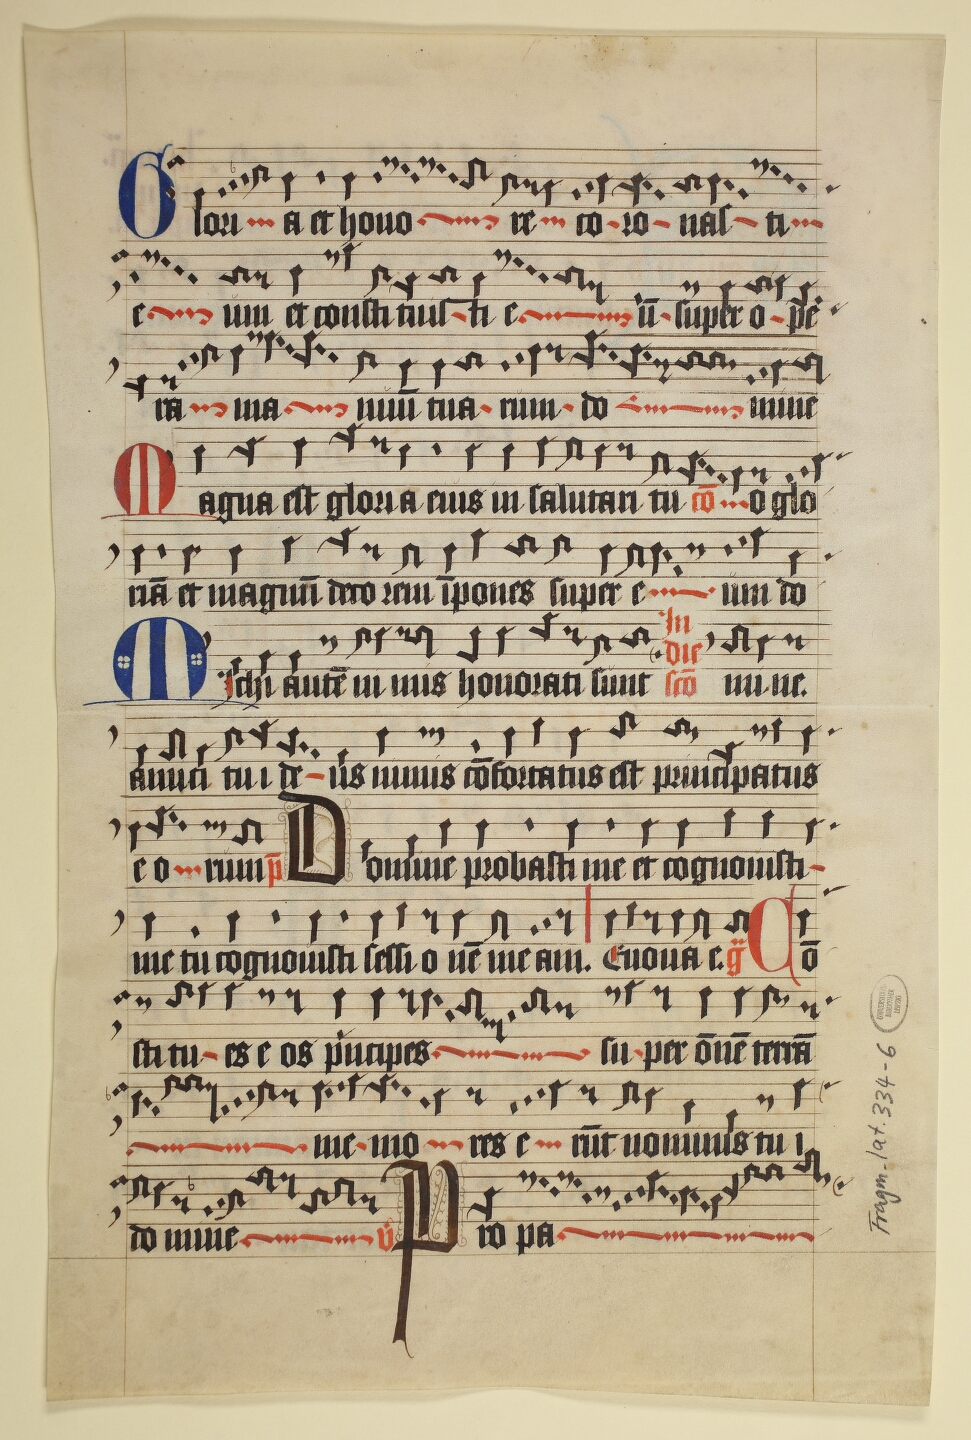 Glori a et hono re co ro nas ti
e um et constituis ti e ū super o pe
ra ma nuū tua rum do mine
Magna est gloria eius in salutari tu cō o glo
riā et magnū deco rem īpones super e um do
Michi autē in nius honorati sunt In die scō mi ne.
amici tu i de us nimis cōfortatus est principatus
e o rum p̄ Domine probasti me et cognouisti
me tu cognouisti sessi o nē me am. Euoua e. g̈ Cō
sti tu es e os p̄ncipes su per ōnē terrā
me mo res e rūt nominis tu i
do mine v̄ Pro pa
Fragm. lat. 334-6